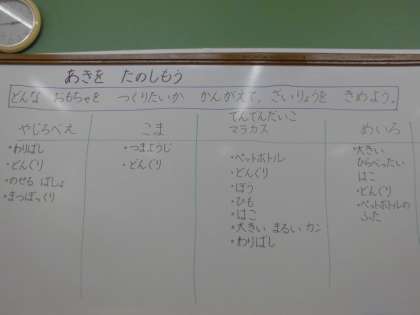 あきを たのしもう
どんな おもちゃを つくりたいか かんがえて、ざいりょうを きめよう。
やじろべえ
・わりばし
・どんぐり
・のせる ばしょ
・まつぼっくり
こま
・つまようじ
・どんぐり
てんてんだいこ
マラカス
・ペットボトル
・どんぐり
・ぼう
・ひも
・はこ
・大きい まるい カン
・わりばし
めいろ
・大きい
ひらべったい
はこ
・どんぐり
・ペットボトルの
ふた